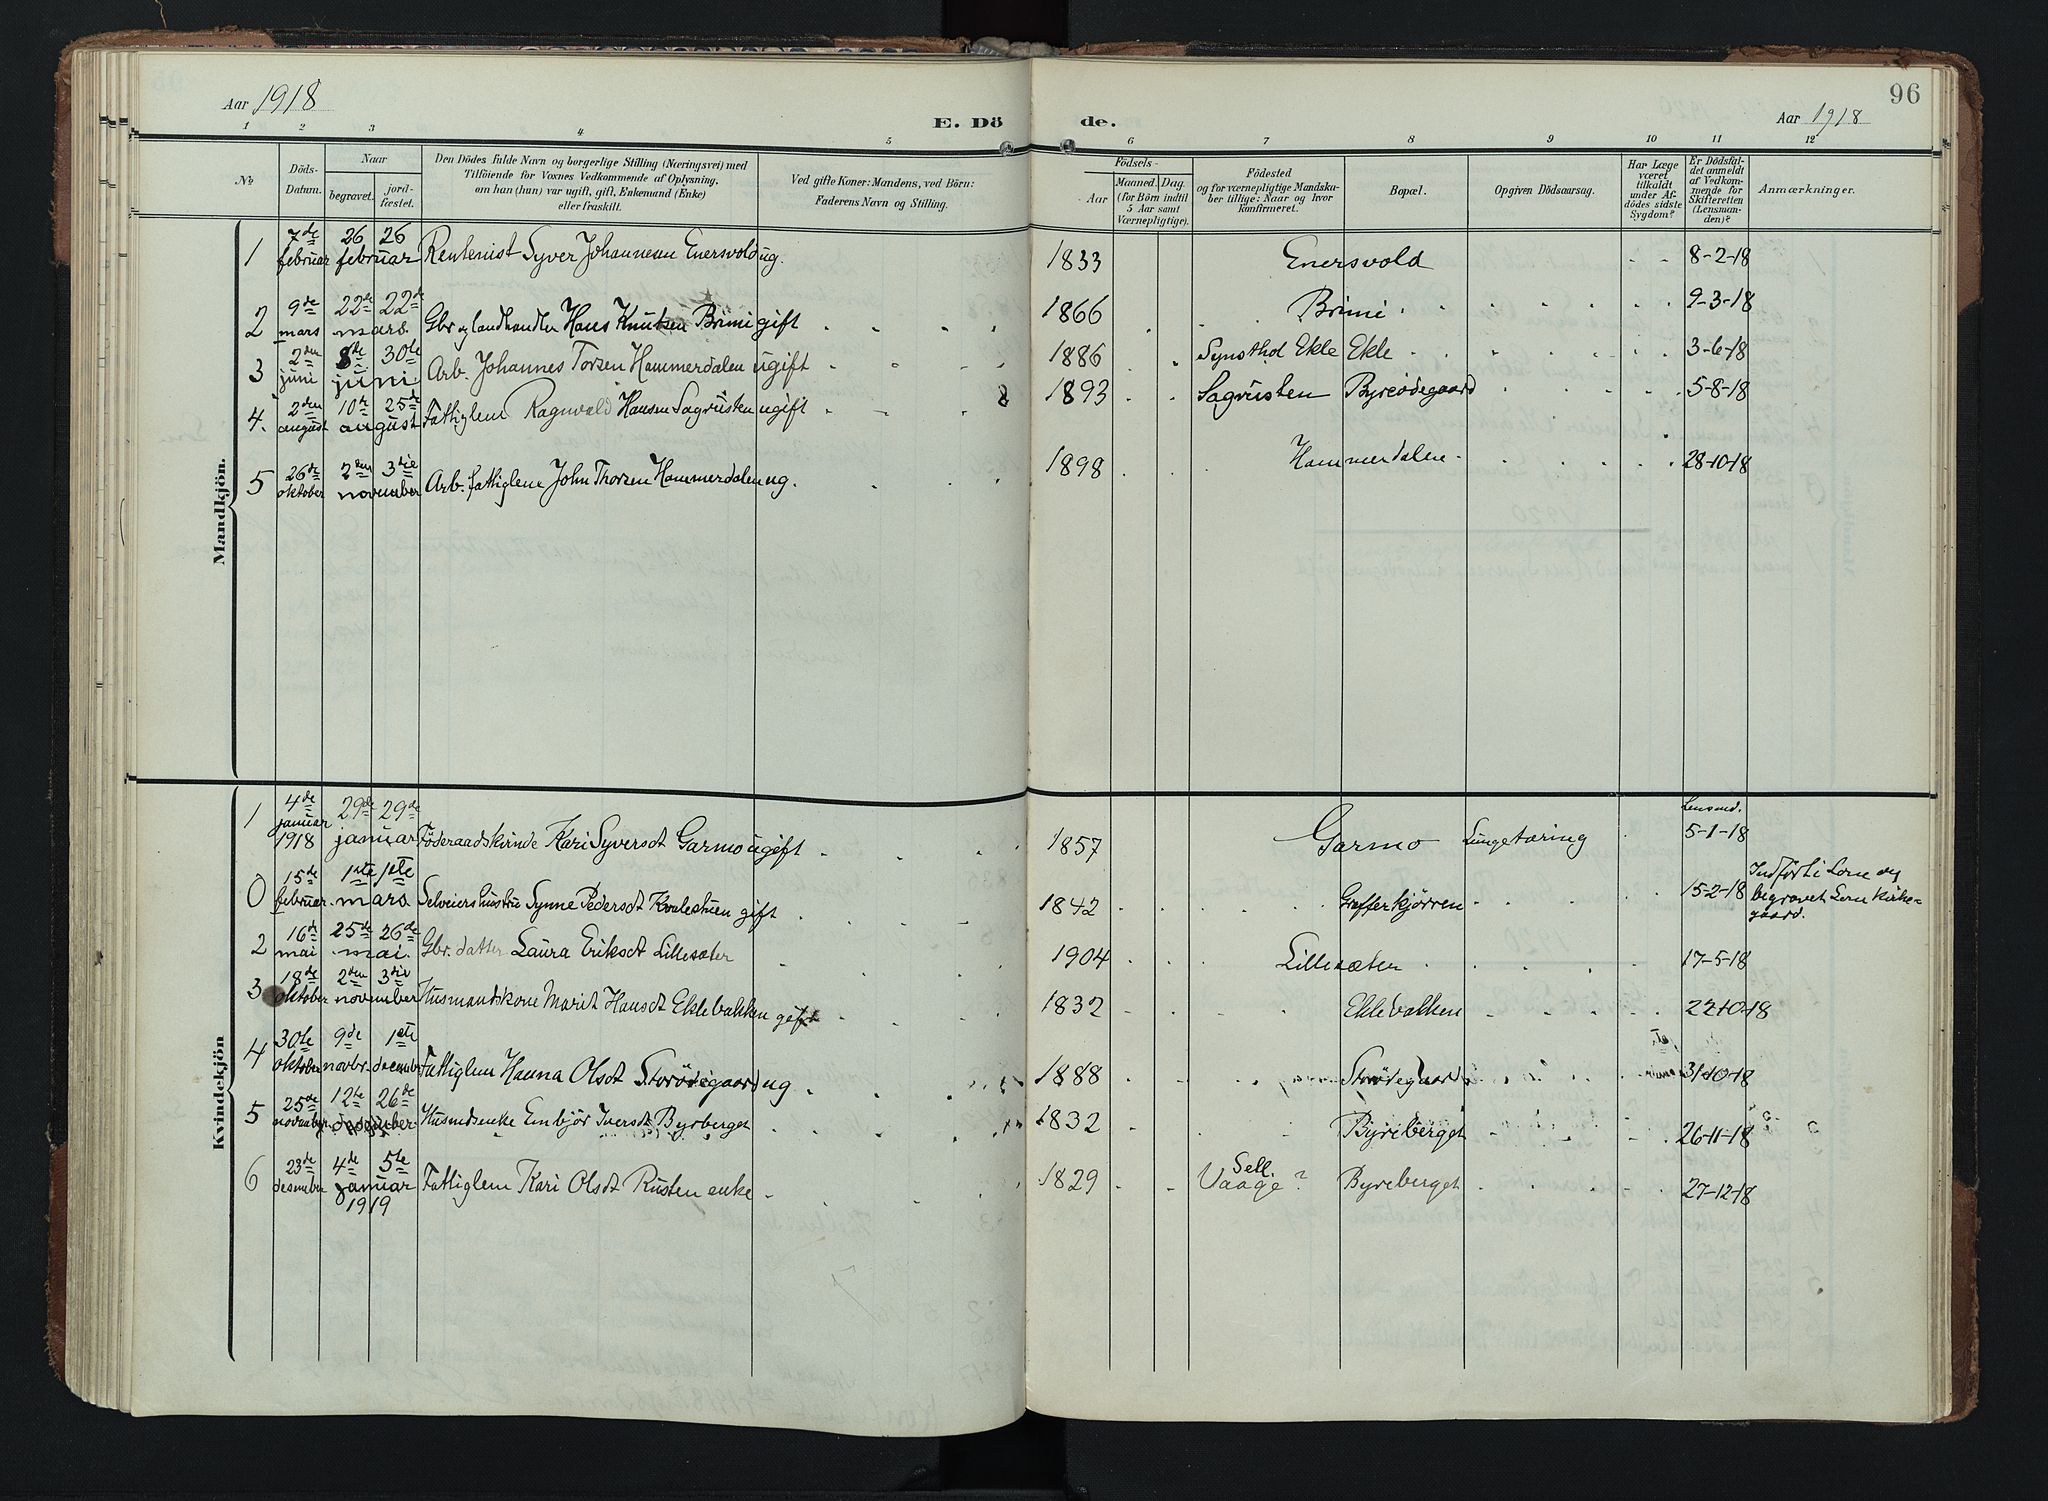 Aar 1918
E. Dö
de.
Aar 1918
96
1 2 3 4 5 6 7 8 9 10 11 12
№
Döds-Datum.
Naar
begravet.
jord-fæstet.
Den Dödes fulde Navn og borgerlige Stilling (Næringsvei) med
Tilföiende for Voxnes Vedkommende af Oplysning,
om han (hun) var ugift, gift, Enkemand (Enke)
eller fraskilt.
Ved gifte Koner: Mandens, ved Börn:
Faderens Navn og Stilling.
Födsels-
Aar
Maaned. Dag.
(for Börn indtil
5 Aar samt
Værnepligtige).
Födested
og for værnepligtige Mandska-
ber tillige: Naar og hvor
konfirmeret.
Bopæl.
Opgiven Dödsaarsag.
Har Læge
været
tilkaldt
under Af-
dödes sidste
Sygdom?
Er Dödsfal-
det anmeldt
af Vedkom-
mende for
Skifteretten
(Lensman-
den)?
Anmærkninger.
Mandkjön.
1 7de februar 26 26 februar Rentenist Syver Johannesen Enersvold ug. 1833 Enersvold 8-2-18
2 9de mars 22de 22de mars. Gbr og landhandler Hans Knutsen Brimi gift 1866 Brimi 9-3-18
3 2den juni 8de 30te juni Arb. Johannes Torsen Hammerdalen ugift 1886 Synsthol Ekle Ekle 3-6-18
4. 2den august 10de 25de august Fattiglem Ragnvald Hansen Sagrusten ugift 1893 Sagrusten Byreødegaard 5-8-18
5 26de oktober 2den 3die november Arb. fattiglem John Thorsen Hammerdalen ug. 1898 Hammerdalen 28-10-18
Kvindekjön
1 4de januar 1918 29de 29de januar Föderaadskvinde Kari Syversdt Garmo ugift 1857 Garmo Lungetæring Lensmd. 5-1-18
0 15de februar. 1ste 1ste mars Selveiers hustru Synne Pedersdt Kvalestuen gift 1842 Grefferkjørren 15-2-18 Indfört i Lom og
begravet Lom Kirke-
gaard.
2 16de mai 25de 26de mai. Gbr. datter Laura Eriksdt Lillesæter 1904 Lillesæter 17-5-18
3 18de oktober 2den 3die november Husmandskone Marit Hansdt Eklebakken gift 1832 Eklebakken 22-10-18
4 30te oktober 9de novbr. 1ste december Fattiglem Hanna Olsdt Storødegaard ug 1888 Storødegaard 31-10-18
5 25de november 12te 26de december Husmdsenke Embjör Iversdt Byrberget 1832 Byreberget 26-11-18
6 23de desember 4de 5te januar 1919 Fattiglem Kari Olsdt Rusten enke 1829 Sell. Vaage? Byreberget 27-12-18